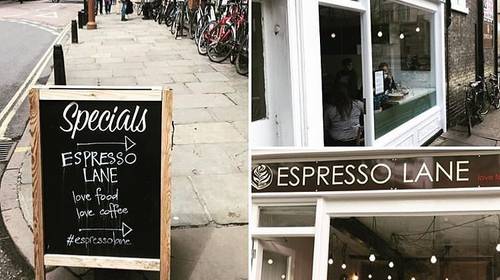 Specials
ESPRESSO
LANE
love food
love coffee
#espressolane
ESPRESSO LANE
love